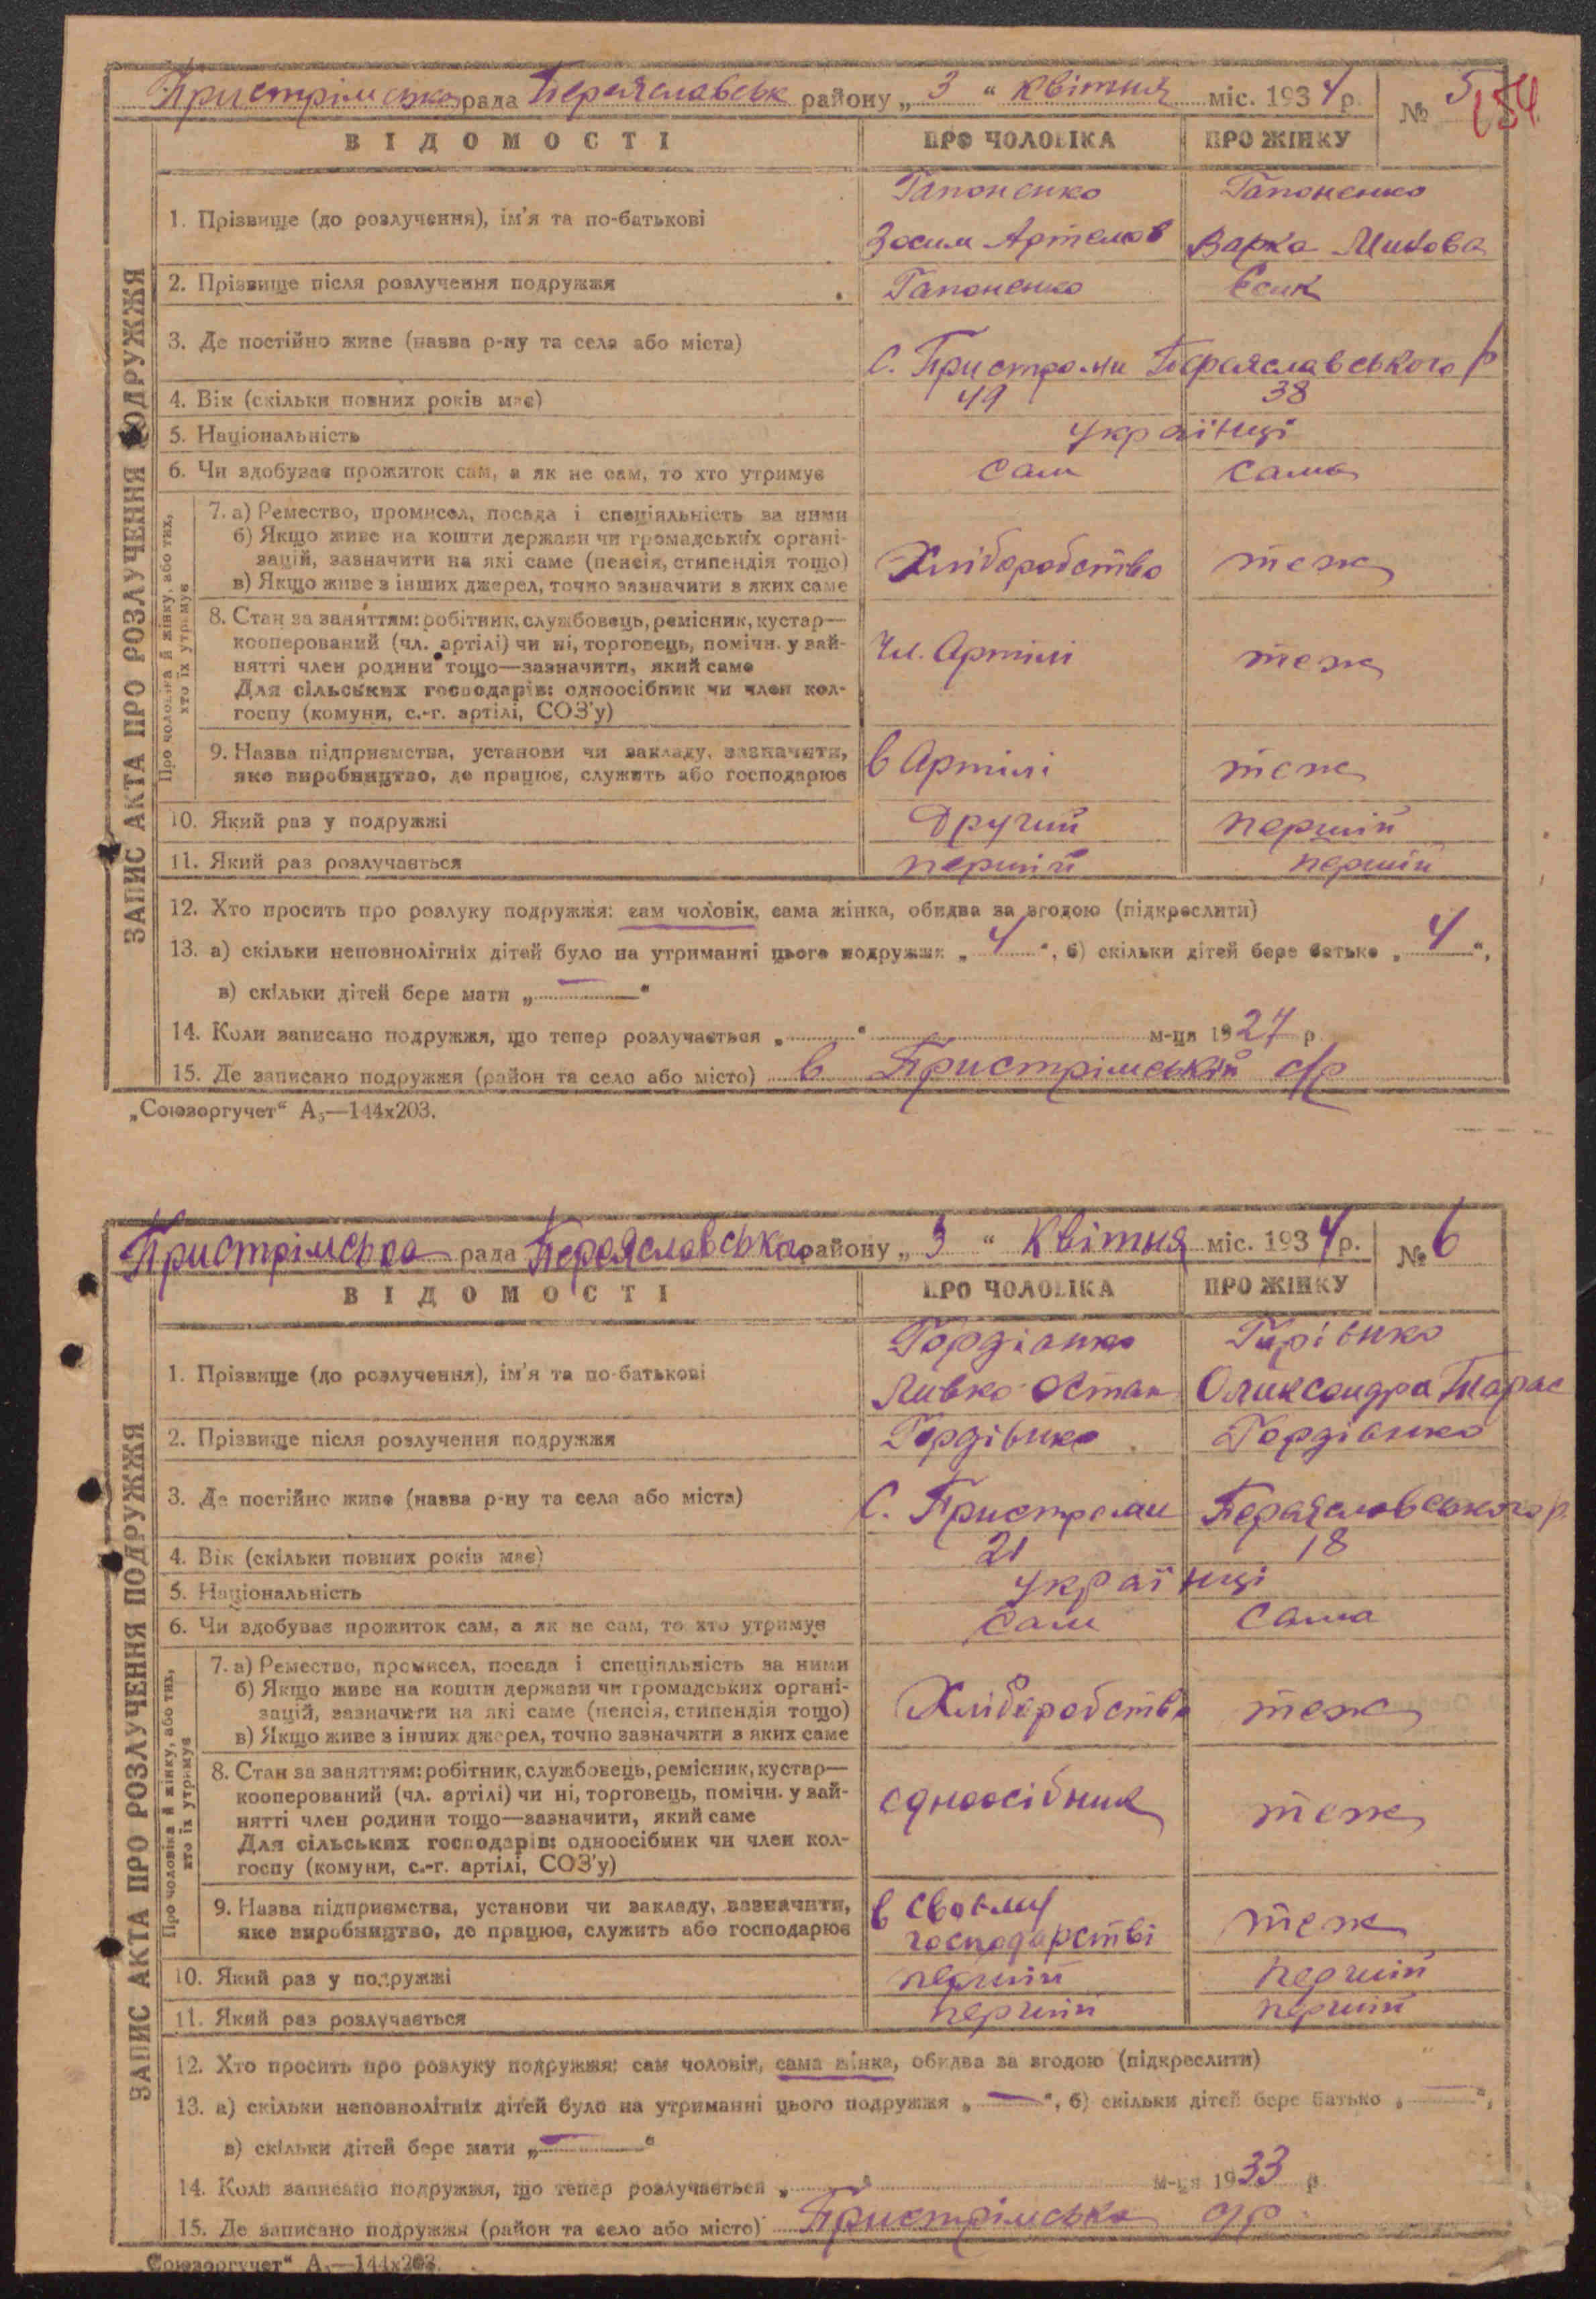 Пристрімська рада Переяславськ району „ 3 “ квітня міс. 1934 р. № 5
154
ВІДОМОСТІ ПРО ЧОЛОВІКА ПРО ЖІНКУ
ЗАПИС АКТА ПРО РОЗЛУЧЕННЯ ПОДРУЖЖЯ
Гапоненко Гапоненко
1. Прізвище (до розлучення), ім'я та по-батькові
Зосим Артемов Варка
2. Прізвище після розлучення подружжя Гапоненко Есик
3. Де постійно живе (назва р-ну та села або міста)
С. Пристроми Переяславського р
4. Вік (скільки повних років має) 49 38
5. Національність українці
6. Чи здобуває прожиток сам, а як не сам, то хто утримує сам сама
Про чоловіка й жінку, або тих,
хто їх утримує
7. а) Ремество, промисел, посада і спеціяльність за ними
б) Якщо живе на кошти держави чи громадських органі-
зацій, зазначити на які саме (пенсія, стипендія тощо)
в) Якщо живе з інших джерел, точно зазначити з яких саме
Хліборобство теж
8. Стан за заняттям: робітник, службовець, ремісник, кустар—
кооперований (чл. артілі) чи ні, торговець, помічн. у зай-
нятті член родини тощо—зазначити, який саме
Для сільських господарів: одноосібник чи член кол-
госпу (комуни, с.-г. артілі, СОЗ'у)
Чл. Артілі теж
9. Назва підприємства, установи чи закладу, зазначити,
яке виробництво, де працює, служить або господарює
в Артілі теж
10. Який раз у подружжі Другий перший
11. Який раз розлучається перший перший
12. Хто просить про розлуку подружжя: сам чоловік, сама жінка, обидва за згодою (підкреслити)
13. а) скільки неповнолітніх дітей було на утриманні цього подружжя „ 4 “, б) скільки дітей бере батько „ 4 “,
в) скільки дітей бере мати „ — “
14. Коли записано подружжя, що тепер розлучається „ “ м-ця 1927 р.
15. Де записано подружжя (район та село або місто) в Пристрімській с/р
„Союзоргучет“ А₅—144х203.
Пристрімська рада Переяславського району „ 3 “ Квітня міс. 1934 р. № 6
ВІДОМОСТІ ПРО ЧОЛОВІКА ПРО ЖІНКУ
ЗАПИС АКТА ПРО РОЗЛУЧЕННЯ ПОДРУЖЖЯ
Гордіенко
1. Прізвище (до розлучення), ім'я та по-батькові
Левко Остап Олександра Тарас
2. Прізвище після розлучення подружжя Гордіенко Гордіенко
3. Де постійно живе (назва р-ну та села або міста)
С. Пристроми Переяславського р.
4. Вік (скільки повних років має) 21 18
5. Національність українці
6. Чи здобуває прожиток сам, а як не сам, то хто утримує сам сама
Про чоловіка й жінку, або тих,
хто їх утримує
7. а) Ремество, промисел, посада і спеціяльність за ними
б) Якщо живе на кошти держави чи громадських органі-
зацій, зазначити на які саме (пенсія, стипендія тощо)
в) Якщо живе з інших джерел, точно зазначити з яких саме
Хліборобство теж
8. Стан за заняттям: робітник, службовець, ремісник, кустар—
кооперований (чл. артілі) чи ні, торговець, помічн. у зай-
нятті член родини тощо—зазначити, який саме
Для сільських господарів: одноосібник чи член кол-
госпу (комуни, с.-г. артілі, СОЗ'у)
одноосібник теж
9. Назва підприємства, установи чи закладу, зазначити,
яке виробництво, де працює, служить або господарює
в своему
господарстві теж
10. Який раз у подружжі перший перший
11. Який раз розлучається перший перший
12. Хто просить про розлуку подружжя: сам чоловік, сама жінка, обидва за згодою (підкреслити)
13. а) скільки неповнолітніх дітей було на утриманні цього подружжя „ — “, б) скільки дітей бере батько „ — “,
в) скільки дітей бере мати „ — “
14. Коли записано подружжя, що тепер розлучається „ “ м-ця 1933 р.
15. Де записано подружжя (район та село або місто) Пристрімська с/р
„Союзоргучет“ А₅—144х203.